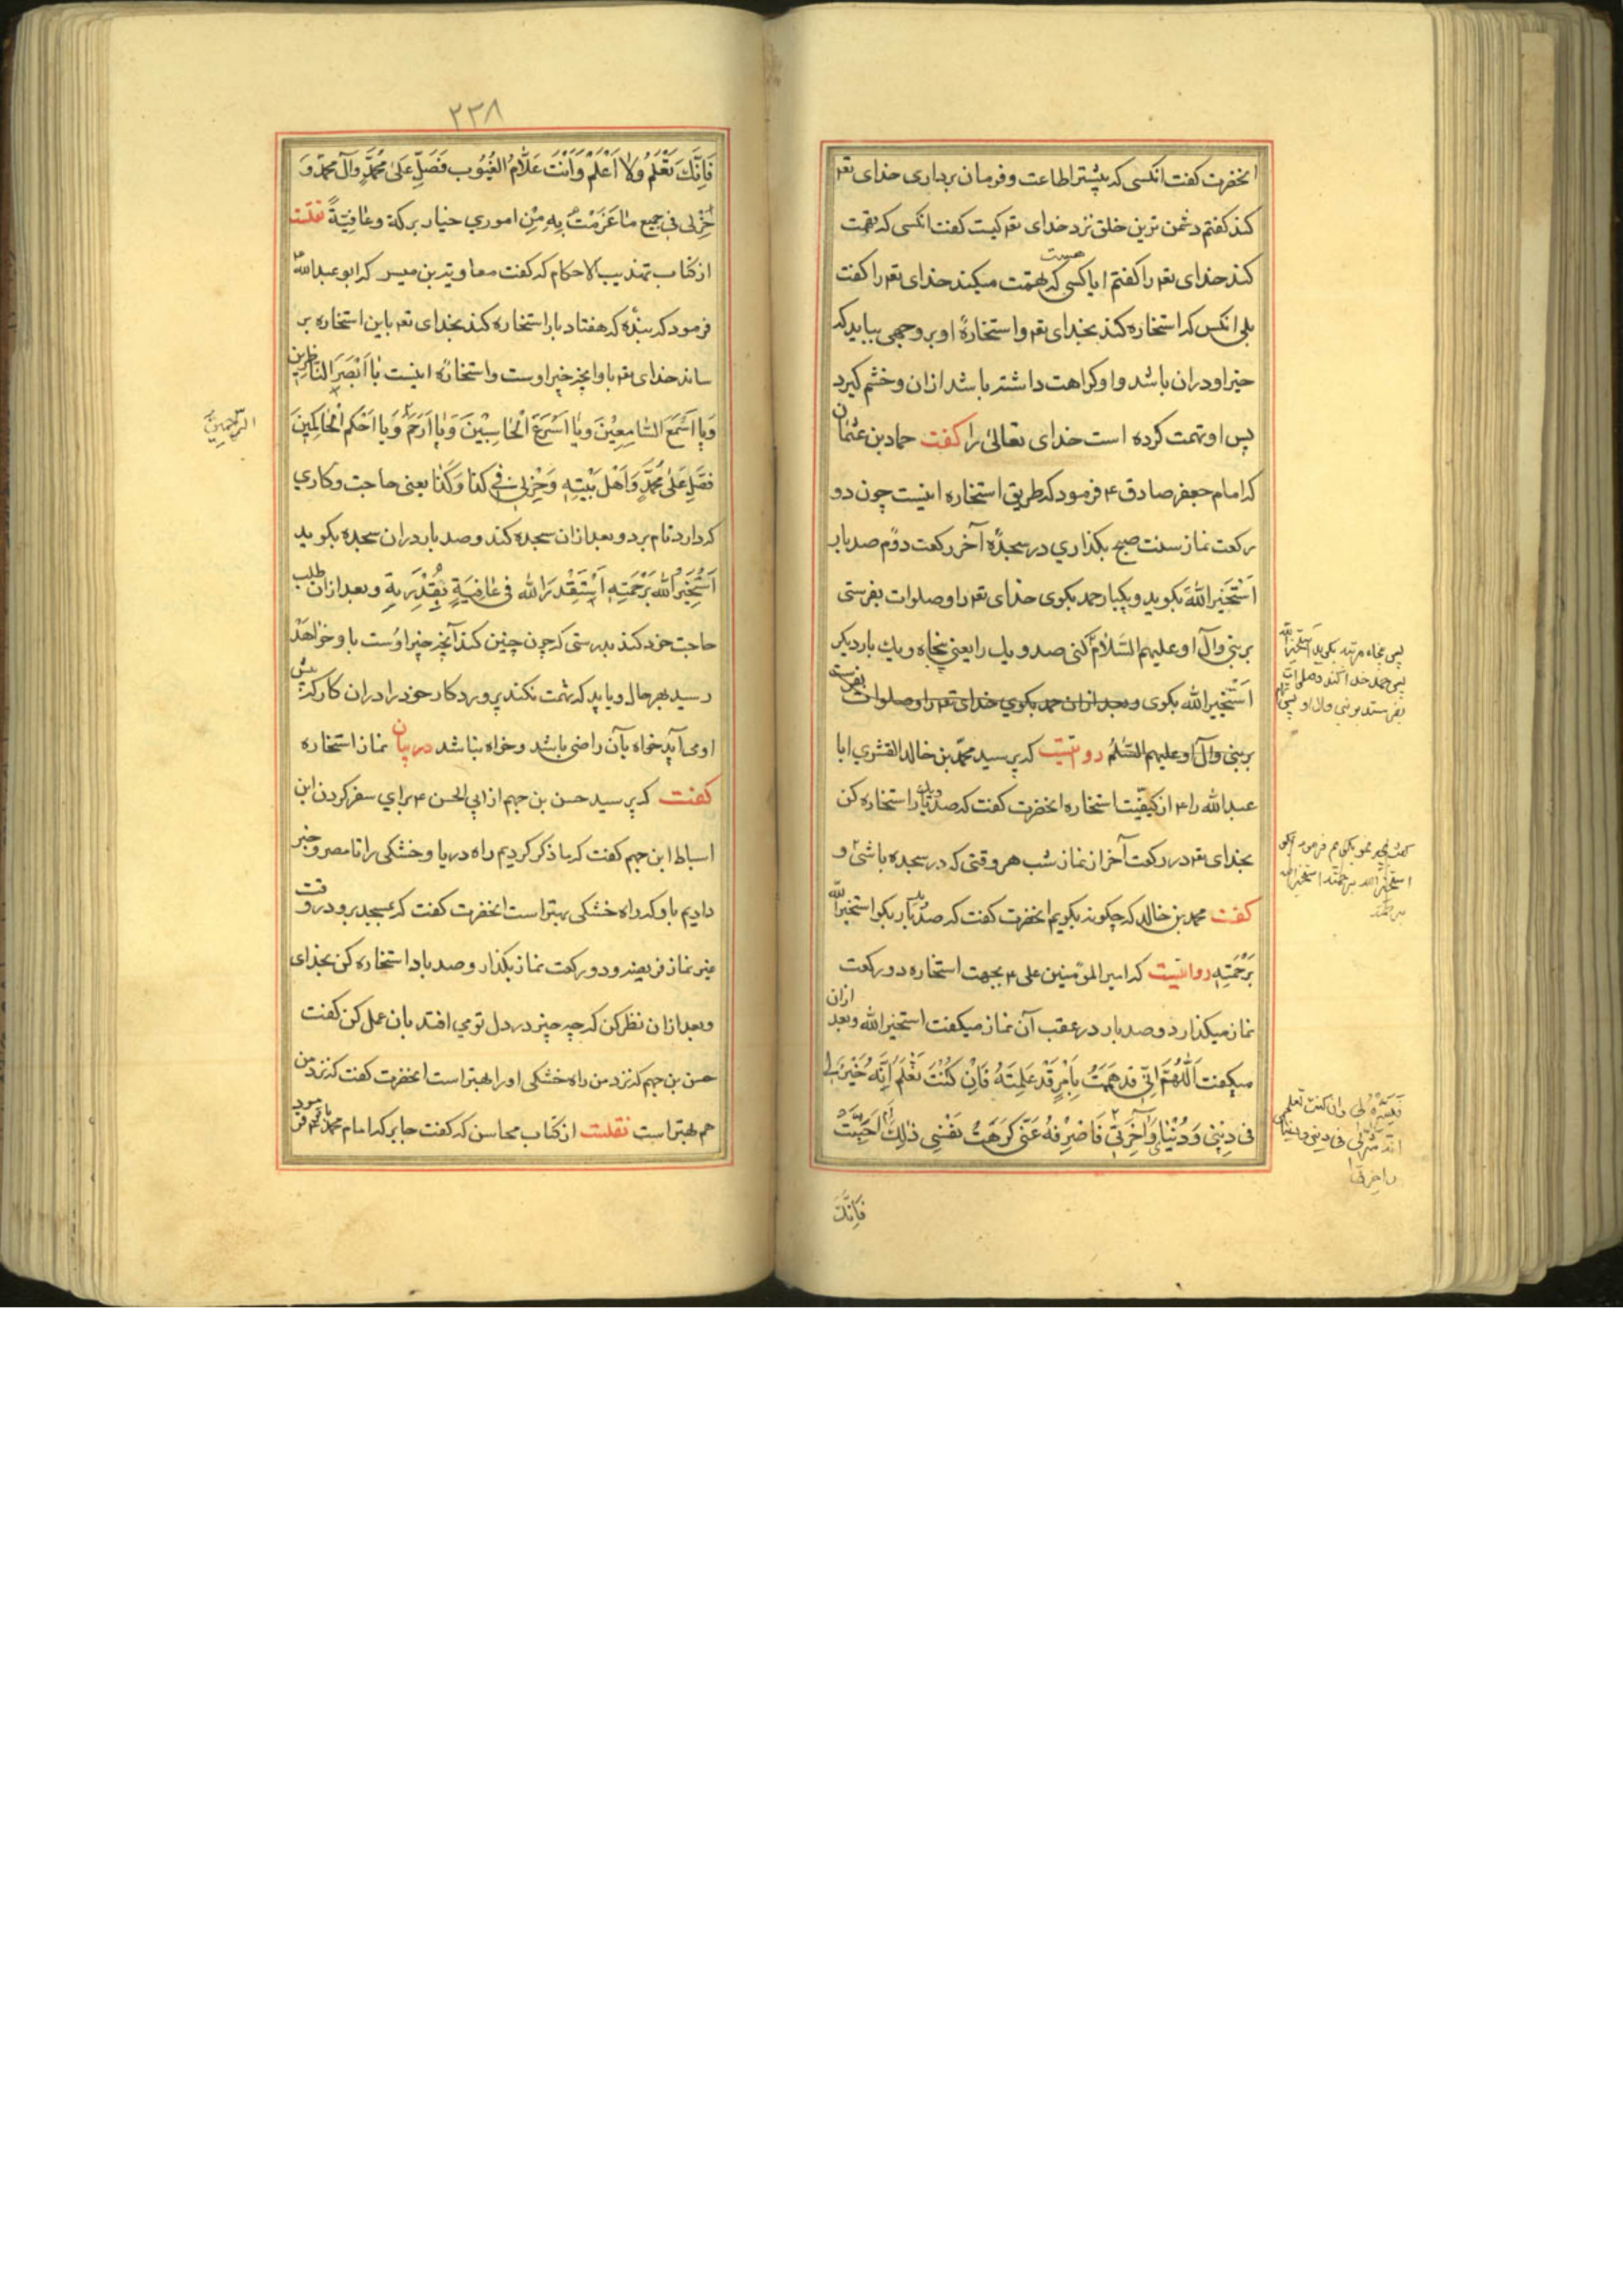 انحضرت کفت انکسی که بیشتر اطاعت و فرمان برداری خدای تعم
کند کفتم دشمن ترین خلق نزد خدای تعم کیست کفت انکسی که تهمت
کند خدای تعم را کفتم ایا کسی هست که تهمت میکند خدای تعم را کفت
بلی انکس که استخاره کند بخدای تعم و استخارهٔ او بر وجهی بیاید که
خیر او دران باشد و او کراهت داشته باشد ازان و خشم کیرد
پس او تهمت کرده است خدای تعالیٰ را کفت حماد بن عثمان
که امام جعفر صادق ۴ فرمود که طریق استخاره اینست چون دو
رکعت نماز سنت صبح بکذاری در سجدهٔ آخر رکعت دوّم صد بار
اَسْتَخیرُ اللهَ بکوید و یکبار حمد بکوی خدای تعم را و صلوات بفرستی
بر نبی وآل او علیهم السَّلام کنی صد و یك را یعنی پنجاه و یك بار دیکر
اَسْتَخیرُ الله بکوی و بعد ازان حمد بکوي خدای تعم را و صلوات بفرست
بر نبی وآل او علیهم السَّلمُ روایتست که پرسید محمّد بن خالد القشري ابا
عبد الله را ۴ از کیفیّت استخاره انحضرت کفت که صد و یك بار استخاره کن
بخدای تعم در رکعت آخر از نماز شب هر وقتی که در سجده باشی و
کفت محمد بن خالد که چکونه بکویم انحضرت کفت که صد بار بکو استخیرُ الله
بِرَحْمَتِهِ روایتست که امیر المؤمنین علی ۴ بجهت استخاره دو رکعت
نماز میکذارد و صد بار در عقب آن نماز میکفت استخیر الله و بعد ازان
میکفت اَللّٰهُمَّ اِنّی قَد هَمَمتُ بِاَمْرٍ قَدْ عَلِمتَهُ فَاِنْ کُنْتَ تَعْلَمُ اَنَّهُ خَیْرٌ لی
فی دِیْنِی وَ دُنْیایَ وَآخِرَتِی فَاصْرِفْهُ عَنّی کَرِهَتْ نَفْسِی ذٰلِكَ اَمْ اَحَبَّتْ
فَاِنَّكَ
پس پنجاه مرتبه بکوید اَستَخیرُ الله
پس حمد خدا کند و صلوات
بفرستد بر نبی و ال او
استخیر الله برحمته استخیر الله
برحمته
فَیَسِّرْهُ لی وان کنت تعلم
انه شرّ لی فی دینی و دنیای
واخرتی
۲۳۸
فَاِنَّكَ تَعْلَمُ وَلا اَعْلَمُ وَاَنْتَ عَلّامُ الغُیُوب فَصَلِّ عَلیٰ مُحَمَّدٍ وآلِ محمّدٍ وَ
خِرْلی فی جمیع ما عَزَمْتُ بِهِ مِنْ اموري خیار برکة وعافِیَةً نقلست
از کتاب تهذیب الاحکام که کفت معاویة بن میسر که ابو عبد الله ۴
فرمود که بندٔه که هفتاد بار استخاره کند بخدای تعم باین استخاره بر
ساند خدای تعم باو انچه خیر اوست واستخاره اینست یا اَبْصَرَ النّاظِرِین
وَیا اَسْمَعَ السّامِعِیْنَ وَیا اَسْرَعَ الْحاسِبِیْنَ وَیا اَرْحَمَ وَیا اَحْکَمَ الْحاکِمِیْنَ
الرّاحمِینَ
فَصَلِّ عَلیٰ مُحَمَّدٍ وَاَهْلِ بَیْتِهِ وَخِرْلِی فِی کَذا وَکَذا یعنی حاجت و کاري
که دارد نام برد و بعد ازان سجده کند و صد بار دران سجده بکوید
اَسْتَخِیْرُ اللهَ بِرَحْمَتِهِ اَسْتَقْدِرُ الله فی عافِیَةٍ بِقُدْرَتِهِ و بعد ازان طلب
حاجت خود کند بدرستی که چون چنین کند آنچه خیر اوست باو خواهد
رسید بهر حال و باید که تهمت نکند پرورد کار خود را دران کار که پیش
او می آید خواه بآن راضی باشد و خواه نباشد در بیان نماز استخاره
کفت که پرسید حسن بن جهم از ابي الحسن ۴ براي سفر کردن ابن
اسباط ابن جهم کفت که ما ذکر کردیم راه دریا و خشکی را تا مصر و خبر
دادیم باو که راه خشکی بهتر است انحضرت کفت که بمسجد برو در وقت
غیر نماز فریضه و دو رکعت نماز بکذار و صد بار استخاره کن بخدای
و بعد ازان نظر کن که چه چیز در دل تو می افتد بان عمل کن کفت
حسن بن جهم که نزد من راه خشکی اورا بهتر است انحضرت کفت که نزد من
هم بهتر است نقلست از کتاب محاسن که کفت جابر که امام محمد باقر ۴ فرمود